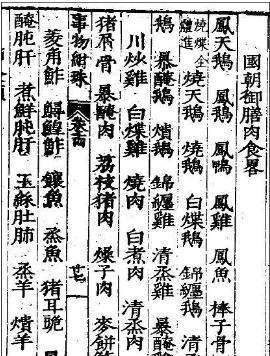 國朝御膳肉食畧
鳳天鵝 鳳鵝 鳳鴨 鳳雞 鳳魚 棒子骨
燒煠仝 燒天鵝 燒鵝 白煠鵝 錦纏鵝 清蒸
鵝 暴醃鵝 熿鵝 錦纏雞 清蒸雞 暴醃
川炒雞 白煠雞 燒肉 白煮肉 清蒸肉
猪骨 暴醃肉 荔枝猪肉 燥子肉 麥餅
事物紺珠 卷十四 十七
菱角鮓 鮓 釀魚 蒸魚 猪耳脆
醃肫肝 煮鮮肫肝 玉絲肚肺 蒸羊 熿羊